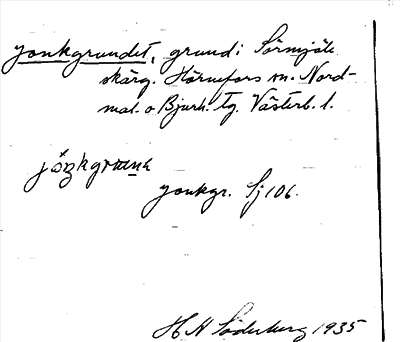 Jonkgrundet, grund i Sörmjöle
skärg. Hörnefors sn. Nord-
mal. o Bjurh. tg. Västerb. l.
jonkgr. Sj 106.
H N Söderberg 1935